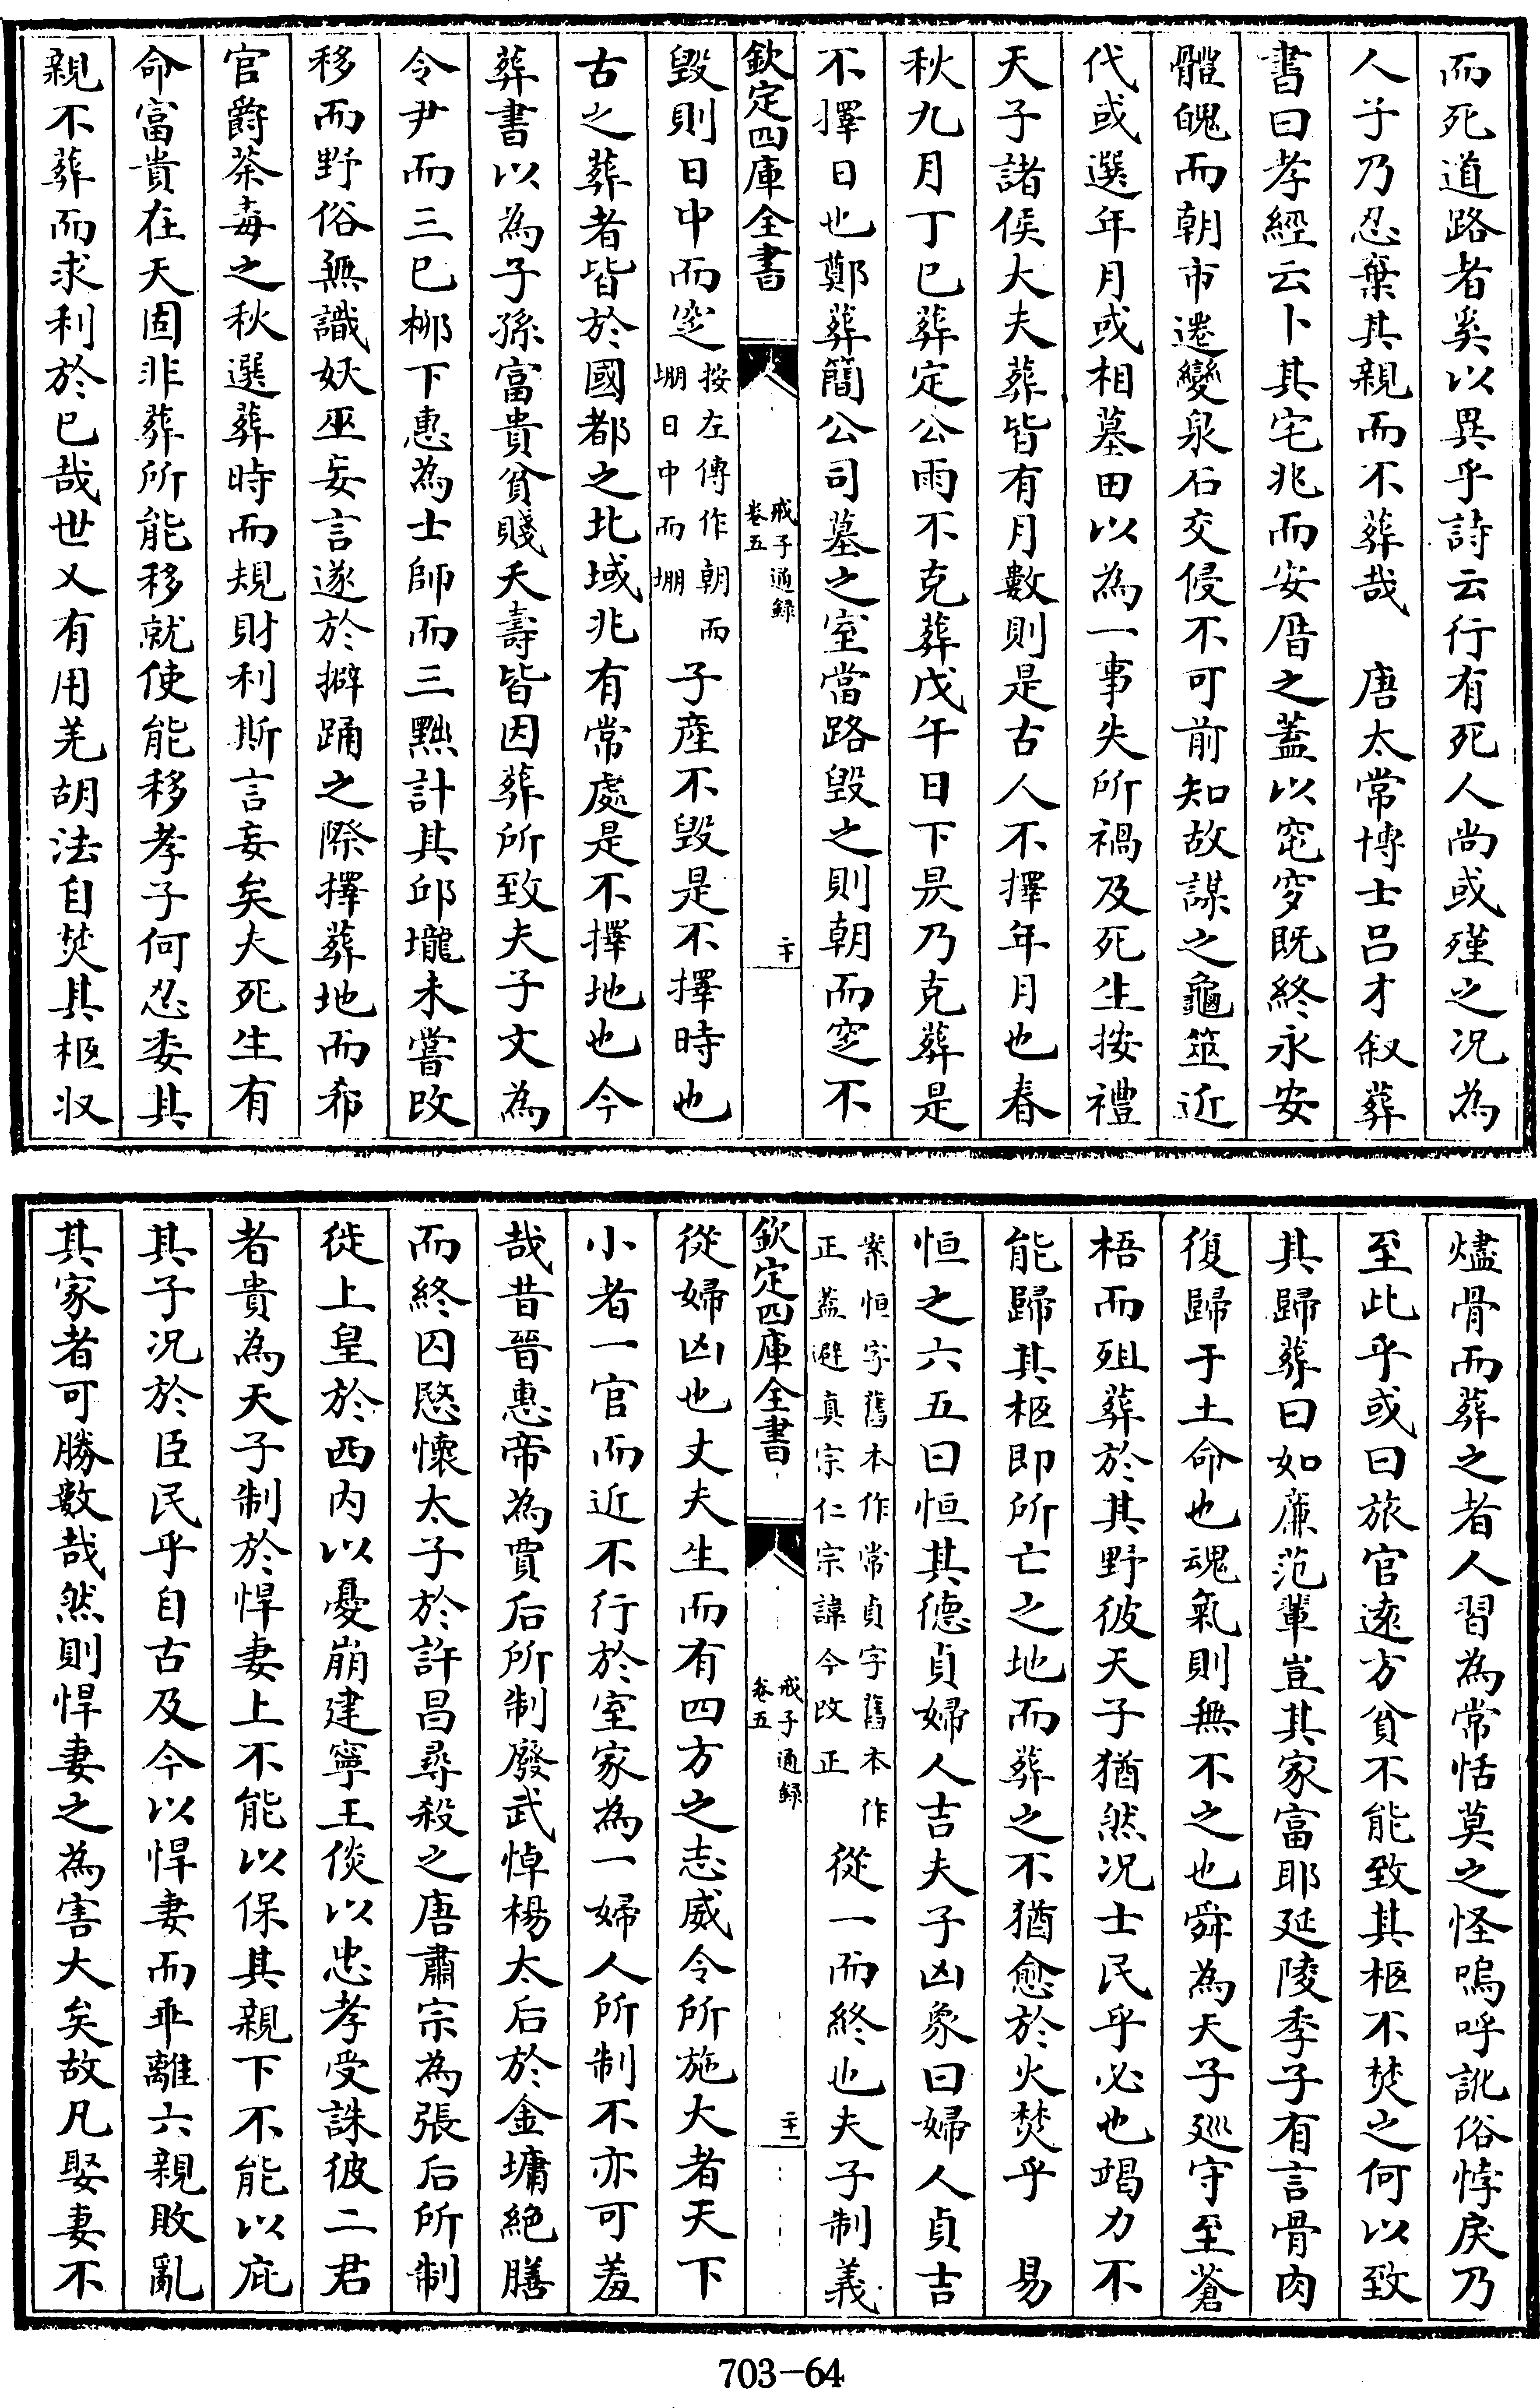 而死道路者奚以異乎詩云行有死人尚或殣之况為
人子乃忍棄其親而不葬哉　唐太常博士吕才叙葬
書曰孝經云卜其宅兆而安厝之蓋以窀穸既終永安
體魄而朝市遷變泉石交侵不可前知故謀之龜筮近
代或選年月或相墓田以為一事失所禍及死生按禮
天子諸侯大夫葬皆有月數則是古人不擇年月也春
秋九月丁巳葬定公雨不克葬戊午日下昃乃克葬是
不擇日也鄭葬簡公司墓之室當路毁之則朝而窆不
欽定四庫全書　戒子通録　卷五　二十
毁則日中而窆按左傳作朝而堋日中而堋子産不毁是不擇時也
古之葬者皆於國都之北域兆有常處是不擇地也今
葬書以為子孫富貴貧賤夭壽皆因葬所致夫子文為
令尹而三巳栁下惠為士師而三黜計其邱壠未嘗改
移而野俗無識妖巫妄言遂於擗踊之際擇葬地而希
官爵荼毒之秋選葬時而規財利斯言妄矣夫死生有
命富貴在天固非葬所能移就使能移孝子何忍委其
親不葬而求利於巳哉世又有用羌胡法自焚其柩収
燼骨而葬之者人習為常恬莫之怪嗚呼訛俗悖戾乃
至此乎或曰旅官逺方貧不能致其柩不焚之何以致
其歸葬曰如廉范輩豈其家富耶延陵季子有言骨肉
復歸于土命也魂氣則無不之也舜為天子廵守至蒼
梧而殂葬於其野彼天子猶然况士民乎必也竭力不
能歸其柩即所亡之地而葬之不猶愈於火焚乎　易
恒之六五曰恒其德貞婦人吉夫子凶象曰婦人貞吉
案恒字舊本作常貞字舊本作正蓋避真宗仁宗諱今改正從一而終也夫子制義
欽定四庫全書　戒子通録　卷五　二十一
從婦凶也丈夫生而有四方之志威令所施大者天下
小者一官而近不行於室家為一婦人所制不亦可羞
哉昔晉惠帝為賈后所制廢武悼楊太后於金墉絶膳
而終囚愍懷太子於許昌尋殺之唐肅宗為張后所制
徙上皇於西内以憂崩建寧王倓以忠孝受誅彼二君
者貴為天子制於悍妻上不能以保其親下不能以庇
其子况於臣民乎自古及今以悍妻而乖離六親敗亂
其家者可勝數哉然則悍妻之為害大矣故凡娶妻不
703-64